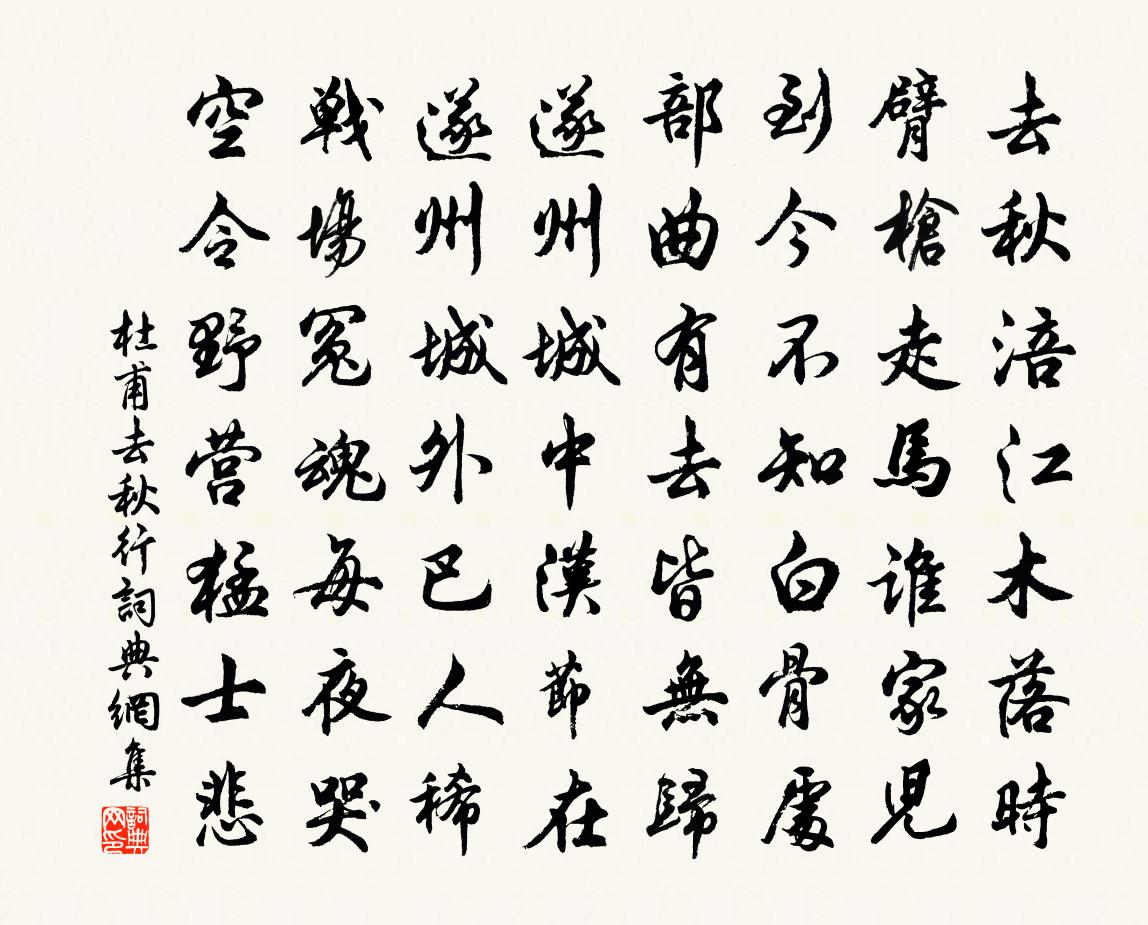 去秋涪江木落時
臂槍走馬誰家兒
到今不知白骨處
部曲有去皆無歸
遂州城中漢節在
遂州城外巴人稀
戰場冤魂每夜哭
空令野營猛士悲
杜甫去秋行詞典網集
詞典網印